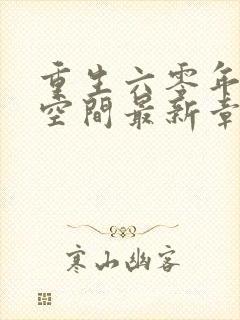 重生六零年
空間最新章
寒山幽客